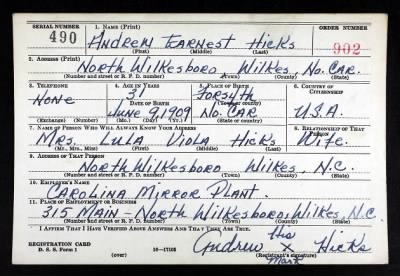 SERIAL NUMBER 1. NAME (Print) ORDER NUMBER
490 ANDREW EARNEST HICKS 902
(First) (Middle) (Last)
2. ADDRESS (Print)
NORTH WILKESBORO, WILKES, NO. CAR.
(Number and street or R. F. D. number) (Town) (County) (State)
3. TELEPHONE 4. AGE IN YEARS 5. PLACE OF BIRTH 6. COUNTRY OF CITIZENSHIP
NONE 31 FORSYTH
DATE OF BIRTH (Town or county)
JUNE 9, 1909 NO. CAR U.S.A.
(Exchange) (Number) (Mo.) (Day) (Yr.) (State or country)
7. NAME OF PERSON WHO WILL ALWAYS KNOW YOUR ADDRESS 8. RELATIONSHIP OF THAT PERSON
MRS. LULA VIOLA HICKS WIFE.
(Mr., Mrs., Miss) (First) (Middle) (Last)
9. ADDRESS OF THAT PERSON
NORTH WILKESBORO WILKES, N.C.
(Number and street or R. F. D. number) (Town) (County) (State)
10. EMPLOYER'S NAME
CAROLINA MIRROR PLANT.
11. PLACE OF EMPLOYMENT OR BUSINESS
315 MAIN - NORTH WILKESBORO, WILKES, N.C.
(Number and street or R. F. D. number) (Town) (County) (State)
I AFFIRM THAT I HAVE VERIFIED ABOVE ANSWERS AND THAT THEY ARE TRUE.
his
Andrew X Hicks
Mark
REGISTRATION CARD
D. S. S. Form 1 16—17105
(over) (Registrant's signature)